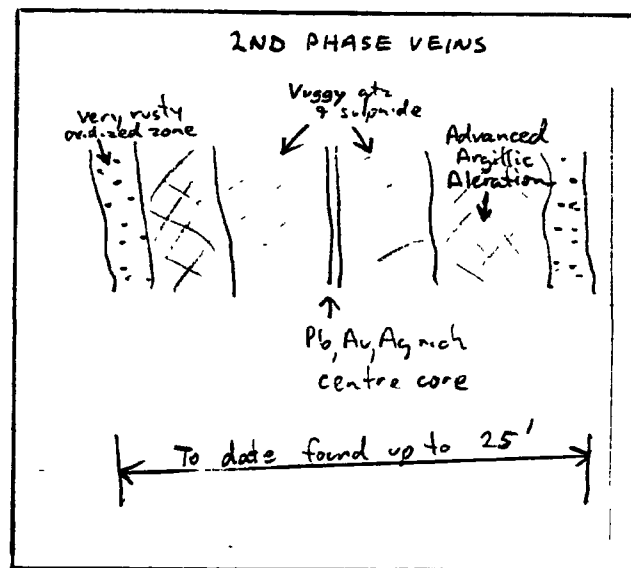 2ND PHASE VEINS
very rusty
oxidized zone
Vuggy qtz
& sulphide
Advanced
Argillic
Aleration
Pb, Au, Ag rich
centre core
To date found up to 25'